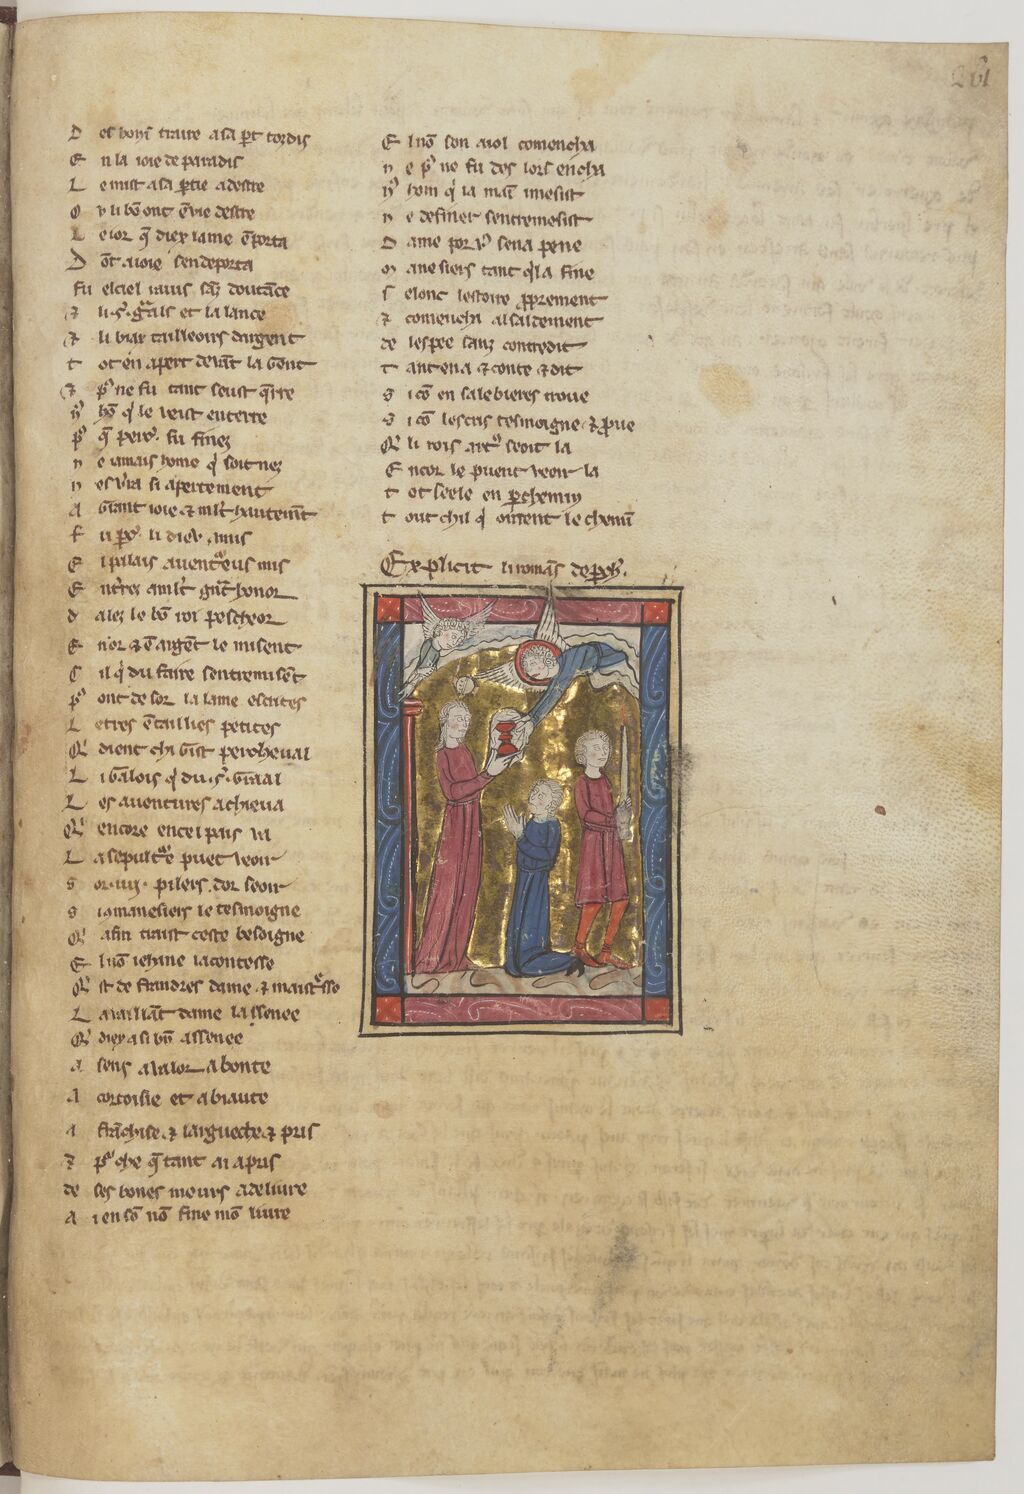 261
D es bons traire a sa p̱t tordis
E n la ioie de paradis
L e mist a sa p̱tie adestre
O u li bō ont ēvie destre
L e ior q̄ diex lame ēporta
D ōt a ioie sen deporta
fu el ciel rauis sāz doutāce
⁊ li .s. g̃als et la lance
⁊ li biax tailleoirs dargent
t ot en apert deuāt la gent
⁊ pꝰ ne fu tant seust q̄rre
nꝰ hō q̇ le veist en terre
pꝰ q̄ perc̓. fu finez
n e iamais home q̇ soit nez
n es v̓ra si apertement
A Grant ioie ⁊ ml̓t hautemēt
E l palais auent̃eus mis
E nt̓rez a ml̓t gñt honor
d alez le bō roi pescheor
E n or ⁊ ē argēt le misent
C il q̇ du faire sentremisēt
pꝰ ont desor la lame escrites
L etres ētaillies petites
Q̇ dient chi gist percheual
L i Galois q̇ du .s. Graal
L es auentures achieua
Q̇ encore en cel pais va
L a sepult̃e puet veoir
s or .iiij. pilers dor seoir
s i q̄ manesiers le tesmoigne
Q̇ a fin traist ceste besoigne
E l nō iehane la contesse
Q̇ st de flandres dame ⁊ maist̓sse
L a vaillāt dame la senee
Q̇ diex a si bñ assenee
A sens a valor a bonte
A cortoisie et a biaute
A franchise ⁊ a larguece ⁊ a pris
de ses bones meurs a deliure
A i en sō nō fine mō liure
E l nō son aiol comencha
n e pꝰ ne fu des lors encha
nꝰ hom q̇ la main i mesist
n e del finer sentremesist
D ame por vꝰ sen a pene
M anesiers tant q̇l a fine
s elonc lestoire proprement
⁊ comencha al saldement
de lespee sanz contredit
t ant en a ⁊ conte ⁊ dit
s i cō en salebieres troue
s i cō lescris tesmoigne ⁊ proue
Q̇ li rois artꝰ seela
E ncor le puent veoir la
t ot seele en parchemin
t out chil q̇ oirrent le chemī
Explicit li romās de perc̓.